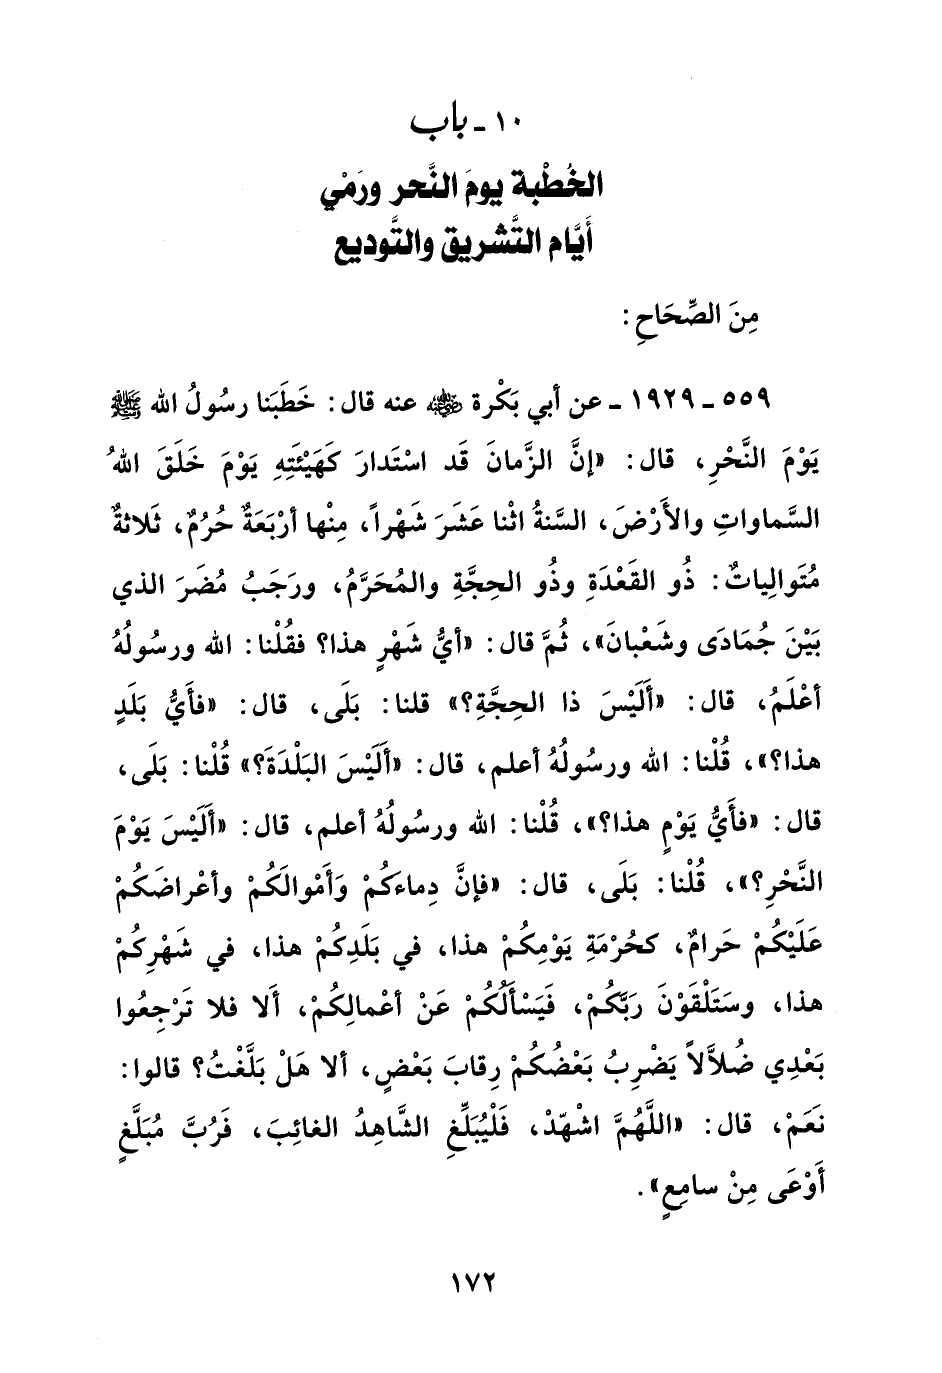 ١٠ - باب
الخُطْبة يومَ النَّحر ورَمْي
أَيَّام التَّشريق والتَّوديع
مِنَ الصِّحَاحِ :
٥٥٩ - ١٩٢٩ - عن أبي بَكْرة ﵁ عنه قال: خَطَبَنا رسُولُ الله ﷺ
يَوْمَ النَّحْرِ، قال: «إنَّ الزَّمانَ قَد اسْتَدارَ كَهَيْئَتِهِ يَوْمَ خَلَقَ اللهُ
السَّماواتِ والأَرْضَ، السَّنةُ اثْنا عَشَرَ شَهْراً، مِنْها أرْبَعَةٌ حُرُمٌ، ثَلاثةٌ
مُتَوالِياتٌ: ذُو القَعْدَةِ وذُو الحِجَّةِ والمُحَرَّمُ، ورَجَبُ مُضَرَ الذي
بَيْنَ جُمَادَى وشَعْبانَ»، ثُمَّ قال: «أيُّ شَهْرٍ هذا؟ فقُلْنا: الله ورسُولُهُ
أعْلَمُ، قال: «أَلَيْسَ ذا الحِجَّةِ؟» قلنا: بَلَى، قال: «فأَيُّ بَلَدٍ
هذا؟»، قُلْنا: الله ورسُولُهُ أعلم، قال: «أَلَيْسَ البَلْدَةَ؟» قُلْنا: بَلَى،
قال: «فأَيُّ يَوْمٍ هذا؟»، قُلْنا: الله ورسُولُهُ أعلم، قال: «أَلَيْسَ يَوْمَ
النَّحْرِ؟»، قُلْنا: بَلَى، قال: «فإنَّ دِماءَكُمْ وَأَمْوالَكُمْ وأعْراضَكُمْ
عَلَيْكُمْ حَرامٌ، كحُرْمَةِ يَوْمِكُمْ هذا، في بَلَدِكُمْ هذا، في شَهْرِكُمْ
هذا، وسَتَلْقَوْنَ رَبَّكُمْ، فَيَسْأَلُكُمْ عَنْ أعْمالِكُمْ، أَلا فلا تَرْجِعُوا
بَعْدِي ضُلاَّلاً يَضْرِبُ بَعْضُكُمْ رِقابَ بَعْضٍ، ألا هَلْ بَلَّغْتُ؟ قالوا:
نَعَمْ، قال: «اللَّهُمَّ اشْهَدْ، فَلْيُبَلِّغِ الشَّاهِدُ الغائِبَ، فَرُبَّ مُبَلَّغٍ
أَوْعَى مِنْ سامِعٍ».
١٧٢